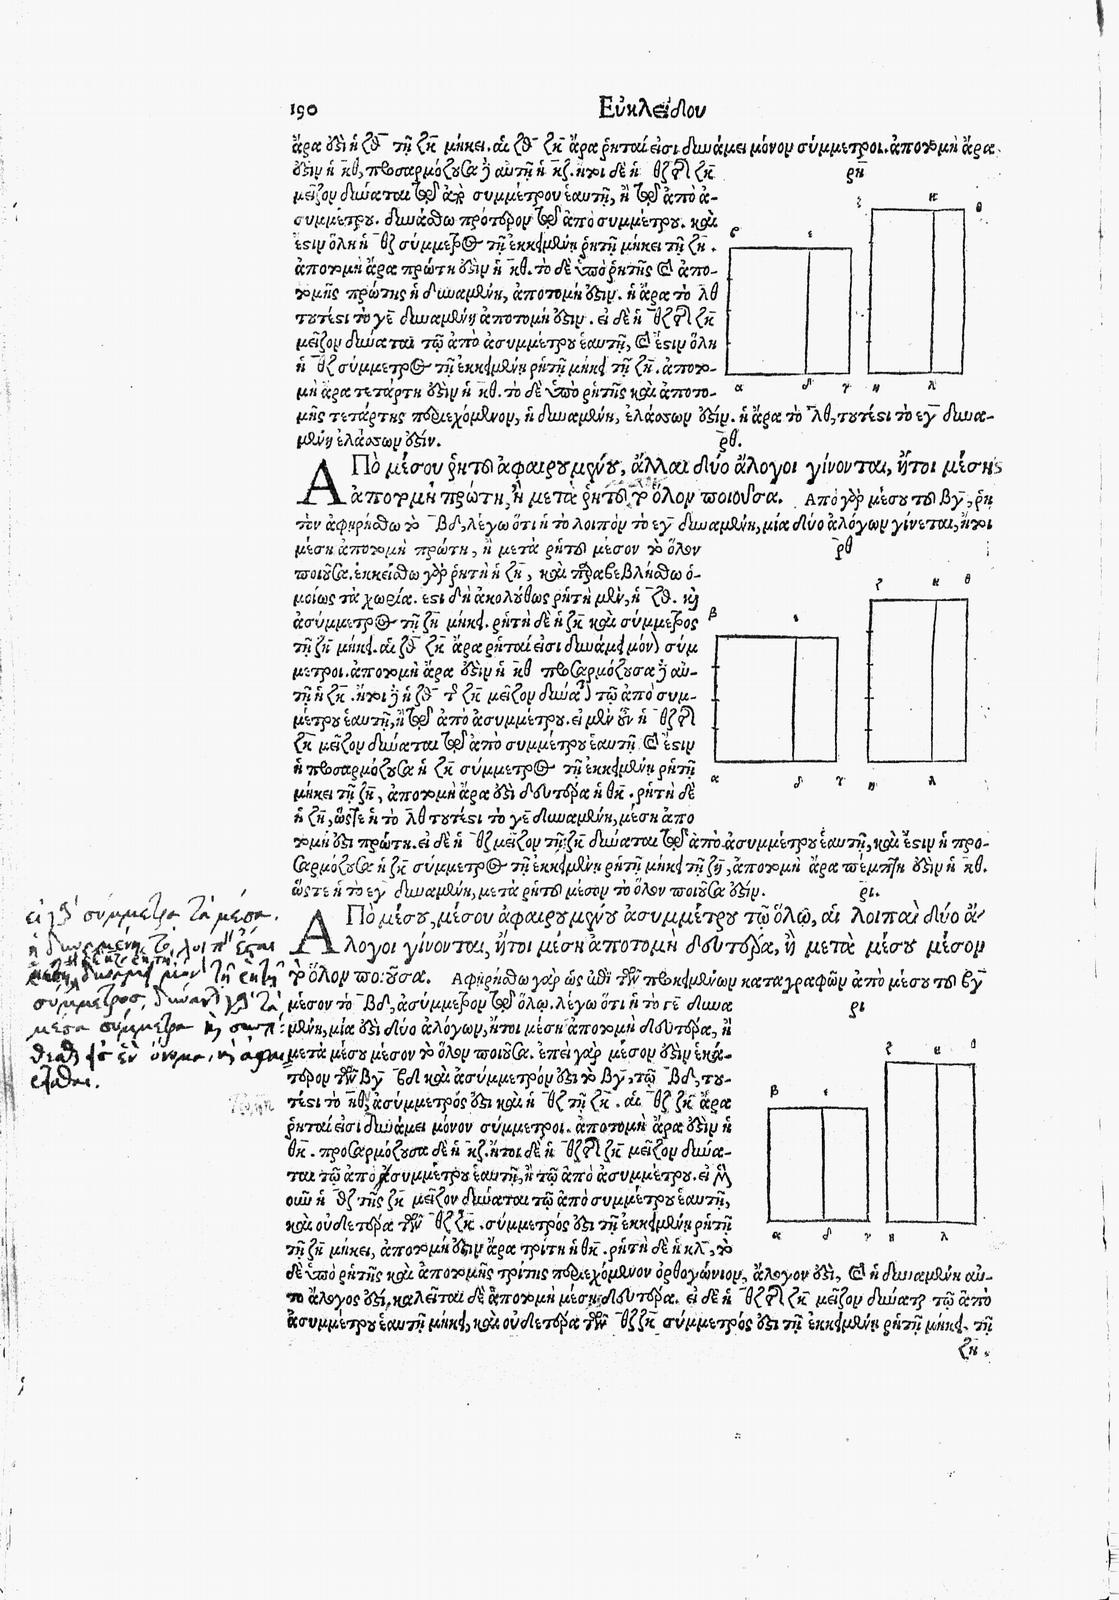 190 Εὐκλείδου
ἄρα ἐστὶν ἡ ζθ τῇ ζη μήκει. αἱ ζθ ζη ἄρα ῥηταί εἰσι δυνάμει μόνον σύμμετροι. ἀποτομὴ ἄρα
ἐστὶν ἡ κθ, προσαρμόζουσα δὲ αὐτῇ ἡ κζ. ἤτοι δὲ ἡ θζ τῆς ζκ
ρη
μεῖζον δύναται τῷ ἀπὸ συμμέτρου ἑαυτῇ, ἢ τῷ ἀπὸ ἀ-
συμμέτρου. δυνάσθω πρότερον τῷ ἀπὸ συμμέτρου. καὶ
ἔστιν ὅλη ἡ θζ σύμμετρος τῇ ἐκκειμένῃ ῥητῇ μήκει τῇ ζη.
ἀποτομὴ ἄρα πρώτη ἐστὶν ἡ κθ. τὸ δὲ ὑπὸ ῥητῆς καὶ ἀπο-
τομῆς πρώτης ἡ δυναμένη, ἀποτομή ἐστιν. ἡ ἄρα τὸ λθ
τουτέστι τὸ γε δυναμένη ἀποτομή ἐστιν. εἰ δὲ ἡ θζ τῆς ζκ
μεῖζον δύναται τῷ ἀπὸ ἀσυμμέτρου ἑαυτῇ, καὶ ἔστιν ὅλη
ἡ θζ σύμμετρος τῇ ἐκκειμένῃ ῥητῇ μήκει τῇ ζη. ἀποτο-
μὴ ἄρα τετάρτη ἐστὶν ἡ κθ. τὸ δὲ ὑπὸ ῥητῆς καὶ ἀποτο-
μῆς τετάρτης περιεχόμενον, ἡ δυναμένη, ἐλάσσων ἐστίν. ἡ ἄρα τὸ λθ, τουτέστι τὸ εγ δυνα-
μένη ἐλάσσων ἐστίν.
ρθ.
ΑΠὸ μέσου ῥητοῦ ἀφαιρουμένου, ἄλλαι δύο ἄλογοι γίνονται, ἤτοι μέσης
ἀποτομὴ πρώτη, ἢ μετὰ ῥητοῦ τὸ ὅλον ποιοῦσα. Ἀπὸ γὰρ μέσου τοῦ βγ, ῥη
τὸν ἀφῃρήσθω τὸ βδ, λέγω ὅτι ἡ τὸ λοιπὸν τὸ εγ δυναμένη, μία δύο ἀλόγων γίνεται, ἤτοι
μέση ἀποτομὴ πρώτη, ἢ μετὰ ῥητοῦ μέσον τὸ ὅλον
ρθ
ποιοῦσα. ἐκκείσθω γὰρ ῥητὴ ἡ ζη, καὶ παραβεβλήσθω ὁ-
μοίως τὰ χωρία. ἔστι δὴ ἀκολούθως ῥητὴ μὲν, ἡ ζθ. καὶ
ἀσύμμετρος τῇ ζη μήκει. ῥητὴ δὲ ἡ ζκ καὶ σύμμετρος
τῇ ζη μήκει. αἱ ζθ ζκ ἄρα ῥηταί εἰσι δυνάμει μόνον σύμ
μετροι. ἀποτομὴ ἄρα ἐστὶν ἡ κθ προσαρμόζουσα δὲ αὐ-
τῇ ἡ ζκ. ἤτοι δὲ ἡ ζθ τῆς ζκ μεῖζον δύναται τῷ ἀπὸ συμ-
μέτρου ἑαυτῇ, ἢ τῷ ἀπὸ ἀσυμμέτρου. εἰ μὲν οὖν ἡ θζ τῆς
ζκ μεῖζον δύναται τῷ ἀπὸ συμμέτρου ἑαυτῇ καὶ ἔστιν
ἡ προσαρμόζουσα ἡ ζκ σύμμετρος τῇ ἐκκειμένῃ ῥητῇ
μήκει τῇ ζη, ἀποτομὴ ἄρα ἐστὶ δευτέρα ἡ θκ. ῥητὴ δὲ
ἡ ζη, ὥστε ἡ τὸ λθ τουτέστι τὸ γε δυναμένη, μέση ἀπο
τομή ἐστι πρώτη. εἰ δὲ ἡ θζ μεῖζον τῇ ζκ δύναται τῷ ἀπὸ ἀσυμμέτρου ἑαυτῇ, καὶ ἔστιν ἡ προ-
σαρμόζουσα ἡ ζκ σύμμετρος τῇ ἐκκειμένῃ ῥητῇ μήκει τῇ ζη, ἀποτομὴ ἄρα πέμπτη ἐστὶν ἡ κθ.
ὥστε ἡ τὸ εγ δυναμένη, μετὰ ῥητοῦ μέσον τὸ ὅλον ποιοῦσα ἐστιν.
ρι.
ΑΠὸ μέσου, μέσον ἀφαιρουμένου ἀσυμμέτρου τῷ ὅλῳ, αἱ λοιπαὶ δύο ἄ-
λογοι γίνονται, ἤτοι μέση ἀποτομὴ δευτέρα, ἢ μετὰ μέσου μέσον
τὸ ὅλον ποιοῦσα. Ἀφῃρήσθω γὰρ ὡς ἐπὶ τῶν προκειμένων καταγραφῶν ἀπὸ μέσου τοῦ βγ
μέσον τὸ βδ, ἀσύμμετρον τῷ ὅλῳ. λέγω ὅτι ἡ τὸ γε δυνα
ρι
μένη, μία ἐστὶ δύο ἀλόγων, ἤτοι μέση ἀποτομὴ δευτέρα, ἢ
μετὰ μέσου μέσον τὸ ὅλον ποιοῦσα. ἐπεὶ γὰρ μέσον ἐστὶν ἑκά-
τερον τῶν βγ βδ καὶ ἀσύμμετρόν ἐστι τὸ βγ, τῷ βδ, του-
τέστι τὸ ἀσύμμετρός ἐστι καὶ ἡ θζ τῇ ζκ. αἱ θζ ζκ ἄρα
ῥηταί εἰσι δυνάμει μόνον σύμμετροι. ἀποτομὴ ἄρα ἐστὶν ἡ
θκ. προσαρμόζουσα δὲ ἡ κζ. ἤτοι δὲ ἡ θζ τῆς ζκ μεῖζον δύνα-
ται τῷ ἀπὸ συμμέτρου ἑαυτῇ, ἢ τῷ ἀπὸ ἀσυμμέτρου. εἰ μὲν
οὖν ἡ θζ τῆς ζκ μεῖζον δύναται τῷ ἀπὸ συμμέτρου ἑαυτῇ,
καὶ οὐδετέρα τῶν θζ ζκ. σύμμετρός ἐστι τῇ ἐκκειμένῃ ῥητῇ
τῇ ζη μήκει, ἀποτομή ἐστιν ἄρα τρίτη ἡ θκ. ῥητὴ δὲ ἡ κλ, τὸ
δὲ ὑπὸ ῥητῆς καὶ ἀποτομῆς τρίτης περιεχόμενον ὀρθογώνιον, ἄλογον ἐστι, καὶ ἡ δυναμένη αὐ-
τὸ ἄλογος ἐστί, καλεῖται δὲ ἀποτομὴ μέση δευτέρα. εἰ δὲ ἡ θζ τῆς ζκ μεῖζον δύναται τῷ ἀπὸ
ἀσυμμέτρου ἑαυτῇ μήκει, καὶ οὐδετέρα τῶν θζ ζκ σύμμετρός ἐστι τῇ ἐκκειμένῃ ῥητῇ μήκει. τῇ
ζη.
εἰ γὰρ σύμμετρα τὰ μέσα.
ἡ δυναμένη τὸ λοιπὸν ἔσται
σύμμετρος,
μέσα σύμμετρα